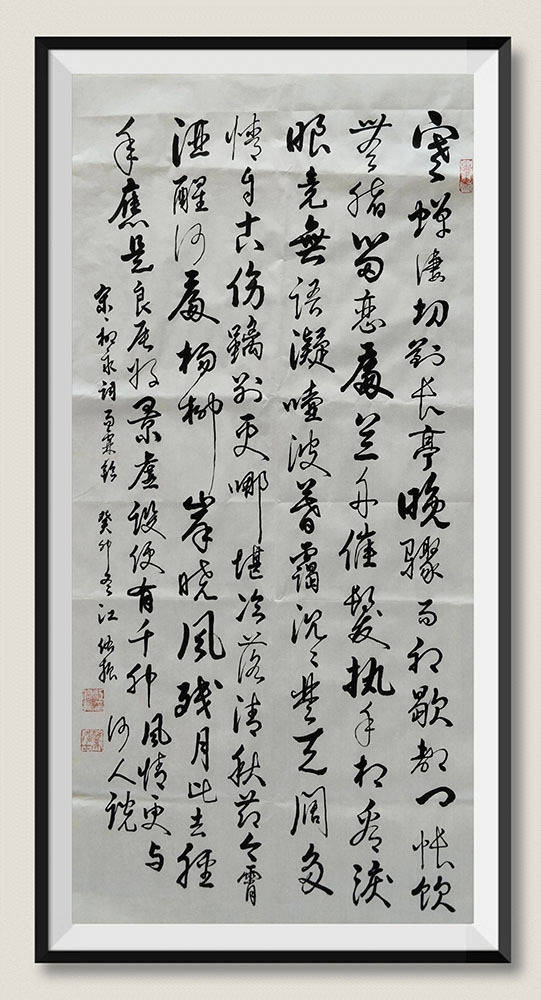 寒蝉凄切對长亭晚骤雨初歇都门帐饮
無绪留恋處兰舟催髮执手相看淚
眼竟無语凝噎波暮霭沉沉楚天阔多
情自古伤離别更哪堪冷落清秋节今宵
酒醒何處杨柳岸晓风残月此去經
年應是良辰好景虚設便有千种风情更与
何人說
宋柳永词雨霖铃 癸卯冬江